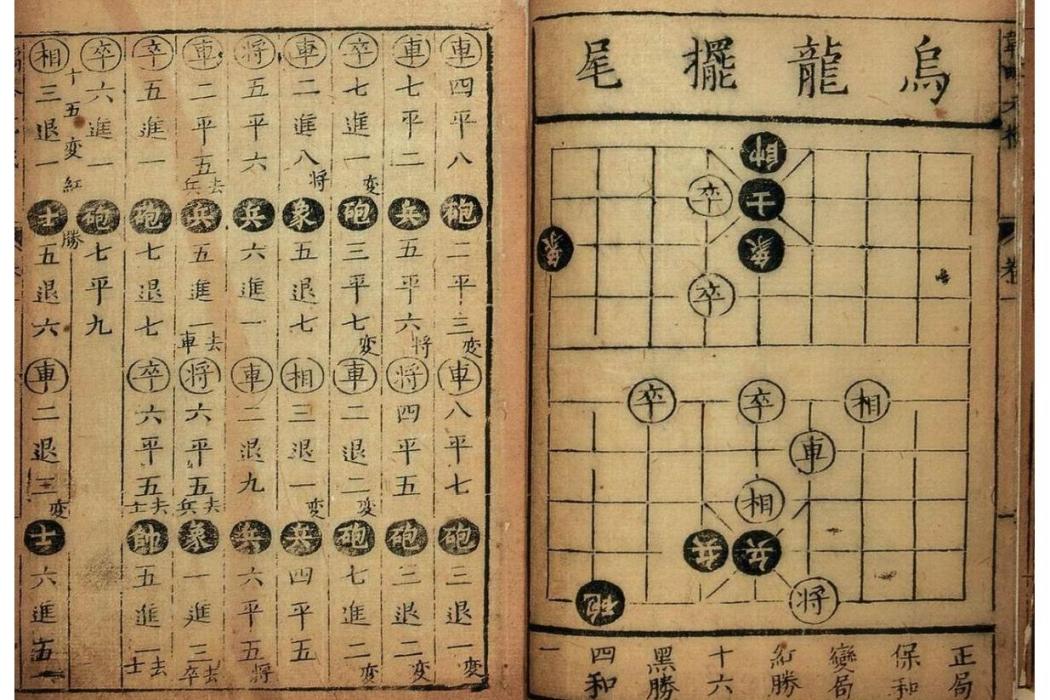 烏龍擺尾
帥
士卒
象象
卒
相卒卒
車
相
兵兵
将砲
正局
保和
變局
紅勝
十六
黑勝
四和
一
車四平八砲二平三変車八平七砲三退一変
車七平二兵五平六将将四平五砲三退二変
卒七進一変砲三平七変車二退二変砲七進二変
車二進八将象五退七相三退一変兵四平五
将五平六兵六進一車二退九兵六平五将
車二平五去兵兵五進一去車将六平五去兵象一進三去卒
卒五進一砲七退七卒六平五去士帥五進一去士
卒六進一砲七平九
十五変紅勝
相三退一士五退六車二退三変士六進五